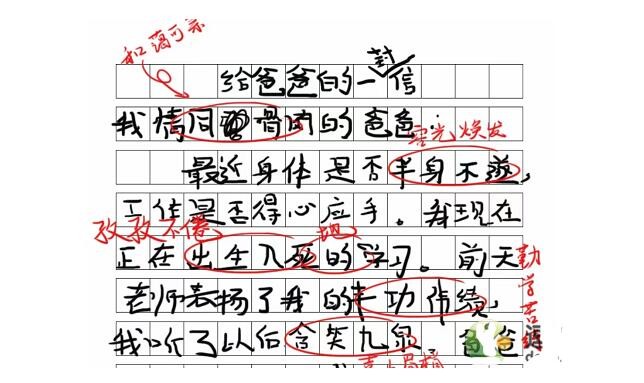 和蔼可亲
给爸爸的一封信
我情同骨肉的爸爸:
容光焕发
最近身体是否半身不遂,
工作是否得心应手。我现在
孜孜不倦
地
正在出生入死的学习。前天
勤学苦
老师表扬了我的丰功伟绩,
我听了以后含笑九泉。爸爸